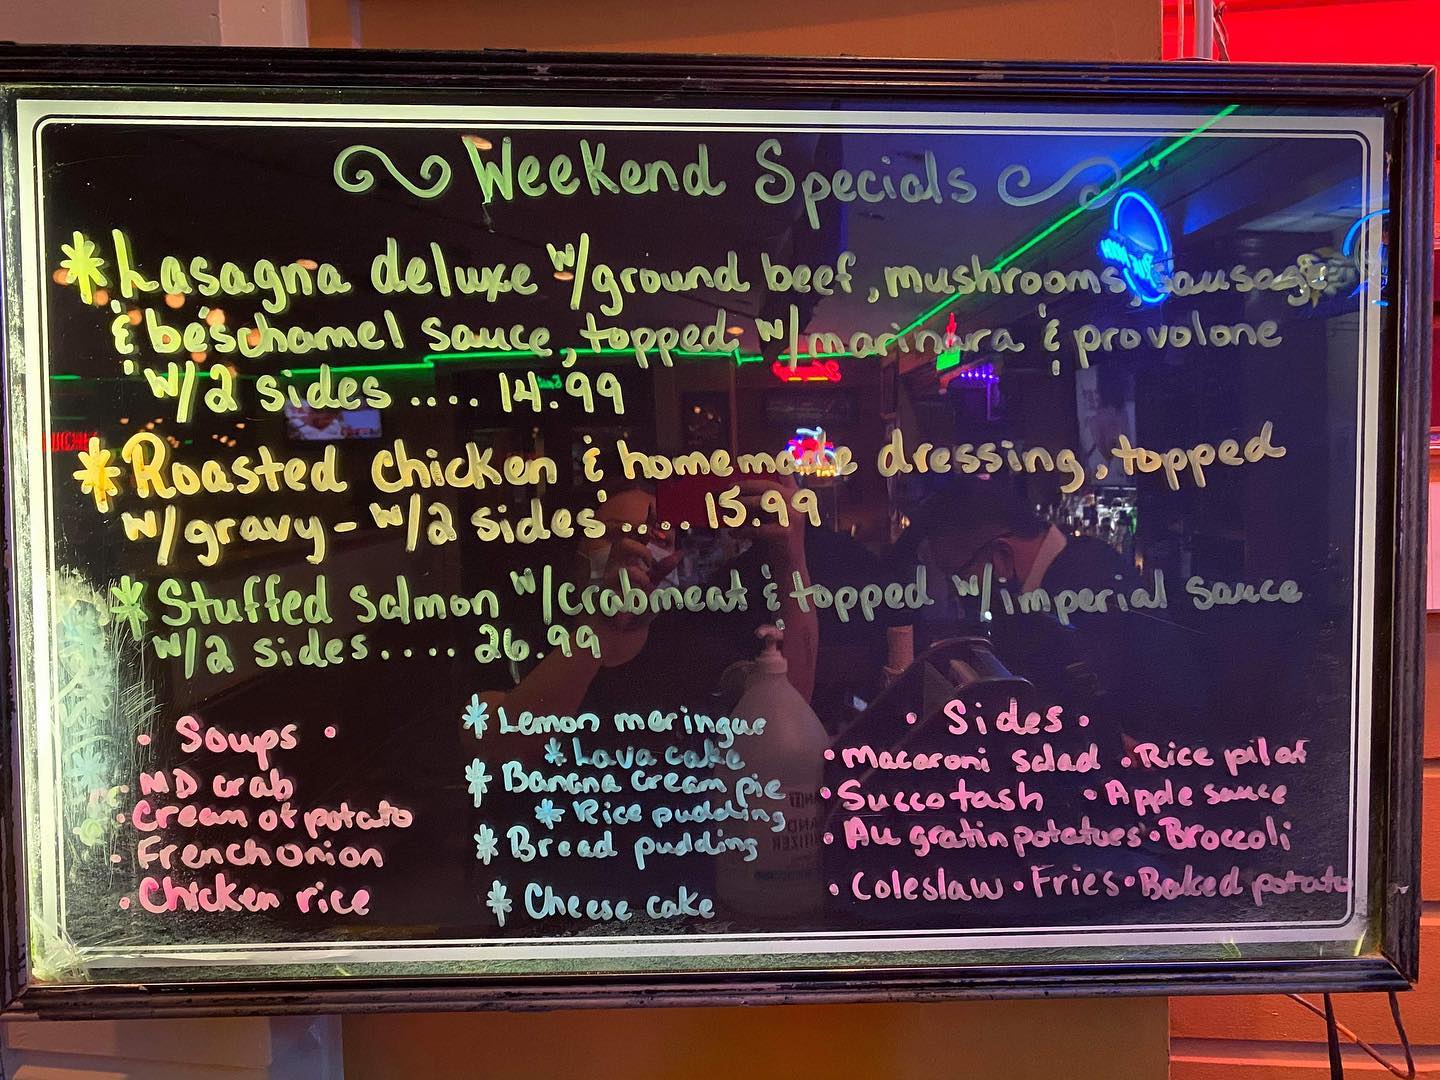 Weekend Specials
* Lasagna deluxe w/ground beef, mushrooms, sausage
& béschamel sauce, topped w/marinara & provolone
w/2 sides .... 14.99
* Roasted chicken & homemade dressing, topped
w/gravy - w/2 sides .... 15.99
* Stuffed salmon w/crabmeat & topped w/imperial sauce
w/2 sides .... 26.99
• Soups •
• MD crab
• Cream of potato
• French onion
• Chicken rice
* Lemon meringue
* Lava cake
* Banana cream pie
* Rice pudding
* Bread pudding
* Cheese cake
• Sides •
• Macaroni salad • Rice pilaf
• Succotash • Apple sauce
• Au gratin potatoes • Broccoli
• Coleslaw • Fries • Baked potato